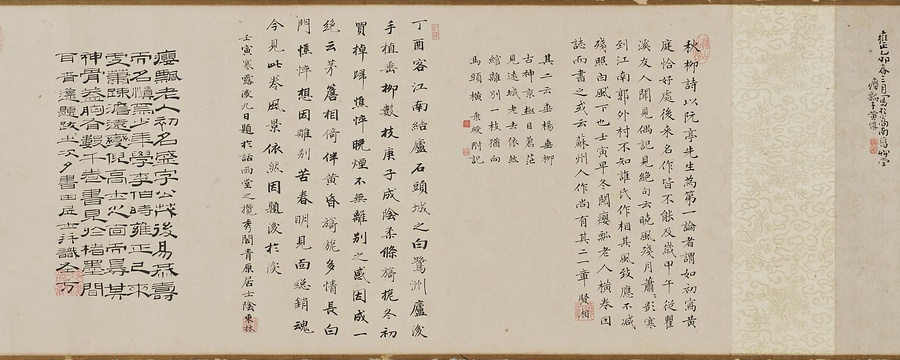 雍正乙卯春三月寫於
癭瓢子黃慎
秋柳詩以阮亭先生為第一論者謂如初寫黃
庭恰好處後來名作皆不能及歲甲午從瞿
溪友人聞見偶記見絕句云晚風殘月蕭〻影寒
到江南郭外村不知誰氏作相其風致應不減
殘照白風下也壬寅早冬閱癭瓢老人橫卷因
誌而書之或云蘇州人作尚有其二一章
其二云垂楊垂柳
古神京極目茫
見遠城老去依然
綰離別一枝猶向
馬頭橫 附記
丁酉客江南結廬石頭城之白鷺洲廬後
手植垂柳數枝庚子成陰柔條旖旎冬初
買棹歸憔悴晚煙不無離別之感因成一
絕云茅簷相倚伴黃昏旖旎多情長白
門憔悴想因離別苦春明見面總銷魂
今見此卷風景依然因題後於
壬寅寒露後九日題於話雨室之攬秀閣青原居士陰東林
癭瓢老人初名盛字公茂後易為壽
而名慎焉少年學李伯時雍正己來
更蕭疎澹遠變倪高士之面而具其
神骨蓋胸有數千卷書見於楮墨間
題跋書田居士識